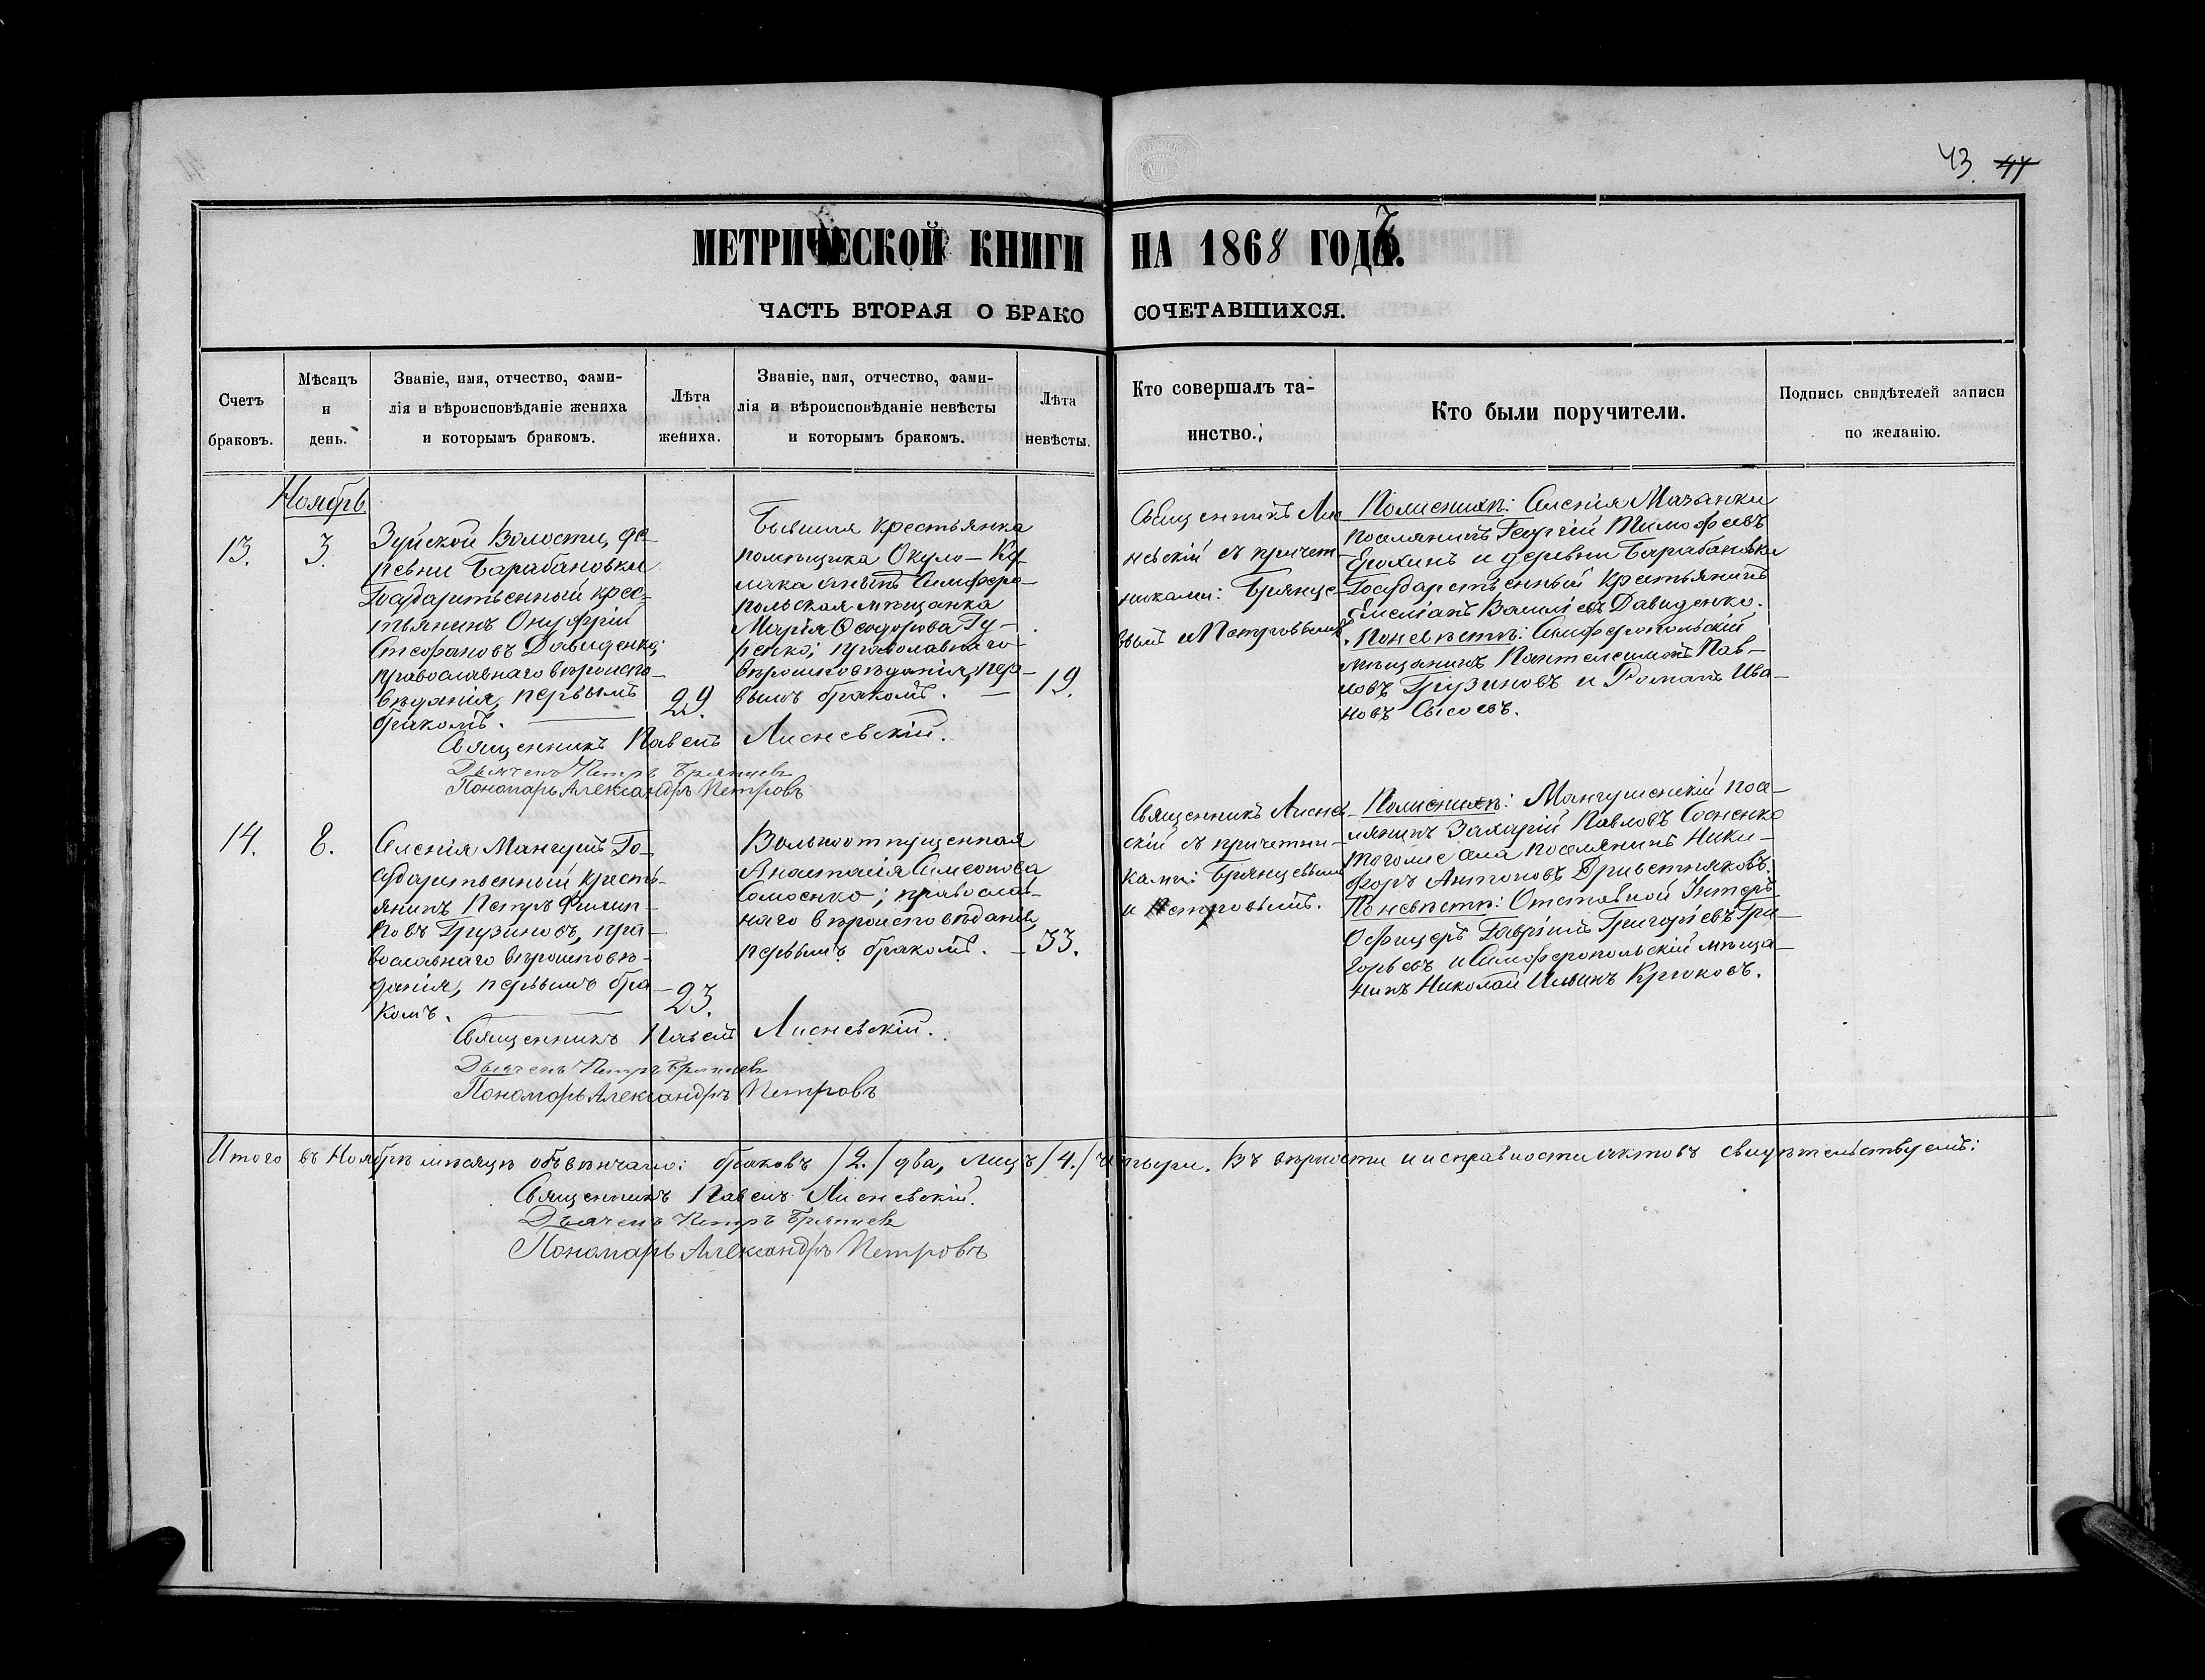 43. 44
МЕТРИЧЕСКОЙ КНИГИ НА 1868 ГОДЪ.
ЧАСТЬ ВТОРАЯ О БРАКО СОЧЕТАВШИХСЯ.
Счетъ
браковъ.
Мѣсяцъ
и
день.
Званіе, имя, отчество, фами-
лія и вѣроисповѣданіе жениха
и которымъ бракомъ.
Лѣта
жениха.
Званіе, имя, отчество, фами-
лія и вѣроисповѣданіе невѣсты
и которымъ бракомъ.
Лѣта
невѣсты.
Кто совершалъ та-
инство.
Кто были поручители.
Подпись свидѣтелей записи
по желанію.
Ноябрь
13.
3.
Зуйской Волости, де-
ревни Барабановки
Государственный крес-
тьянинъ Онуфрій
Стефановъ Давиденко;
православнаго вѣроиспо-
вѣданія, первымъ
бракомъ.
29.
Бывшая крестьянка
помѣщика Окуло-Ку-
лака Симферо-
польская мѣщанка
Марія Ѳеодорова Гу-
ренко; православнаго
вѣроисповѣданія, пер-
вымъ бракомъ.
19.
Священникъ Лис
невскій съ причет-
никами: Брянце-
вымъ и Петровымъ
По женихѣ: Селенія Мазанки
поселянинъ Георгій Тимофеевъ
Ерохинъ и деревни Барабановки
Государственный крестьянинъ
Емеліанъ Василіевъ Давиденко.
По невѣстѣ: Симферопольскій
мѣщанинъ Пантелеимонъ Пав-
ловъ Грузиновъ и Романъ Ива-
новъ Сысоевъ.
Священникъ Павелъ Лисневскій.
Дьячекъ Петръ Брянцевъ
Пономарь Александръ Петровъ
14.
8.
Селенія Мангушъ Го-
сударственный кресть-
янинъ Петръ Филип-
повъ Грузиновъ, пра-
вославнаго вѣроисповѣ-
данія, первымъ бра-
комъ.
23.
Вольноотпущенная
Анастасія Симеонова
Самоенко; православ-
наго вѣроисповѣданія,
первымъ бракомъ.
33.
Священникъ Лиснев-
скій съ причетни-
ками: Брянцевымъ
и Петровымъ.
По женихѣ: Мангушскій посе-
лянинъ Захарій Павловъ Сосненко
того же села поселянинъ Ники-
форъ Антоновъ
По невѣстѣ: Отставной Унтеръ
Офицеръ Гавріилъ Григорьевъ Гри-
горьевъ и Симферопольскій мѣща-
нинъ Николай Ильинъ Крюковъ.
Священникъ Павелъ Лисневскій.
Дьячекъ Петръ Брянцевъ
Пономарь Александръ Петровъ
Итого въ Ноябрѣ мѣсяцѣ обвѣнчано: браковъ /2./ два, лицъ /4./ четыри. Въ вѣрности и исправности актовъ свидѣтельствуемъ:
Священникъ Павелъ Лисневскій.
Дьячекъ Петръ Брянцевъ
Пономарь Александръ Петровъ